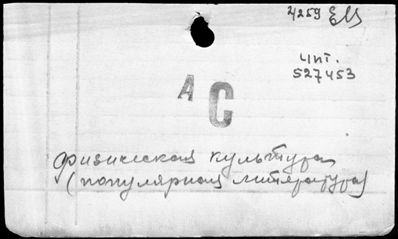 4259 ЕМ
Чит.
527453
А С
физическая культура
(популярная литература)